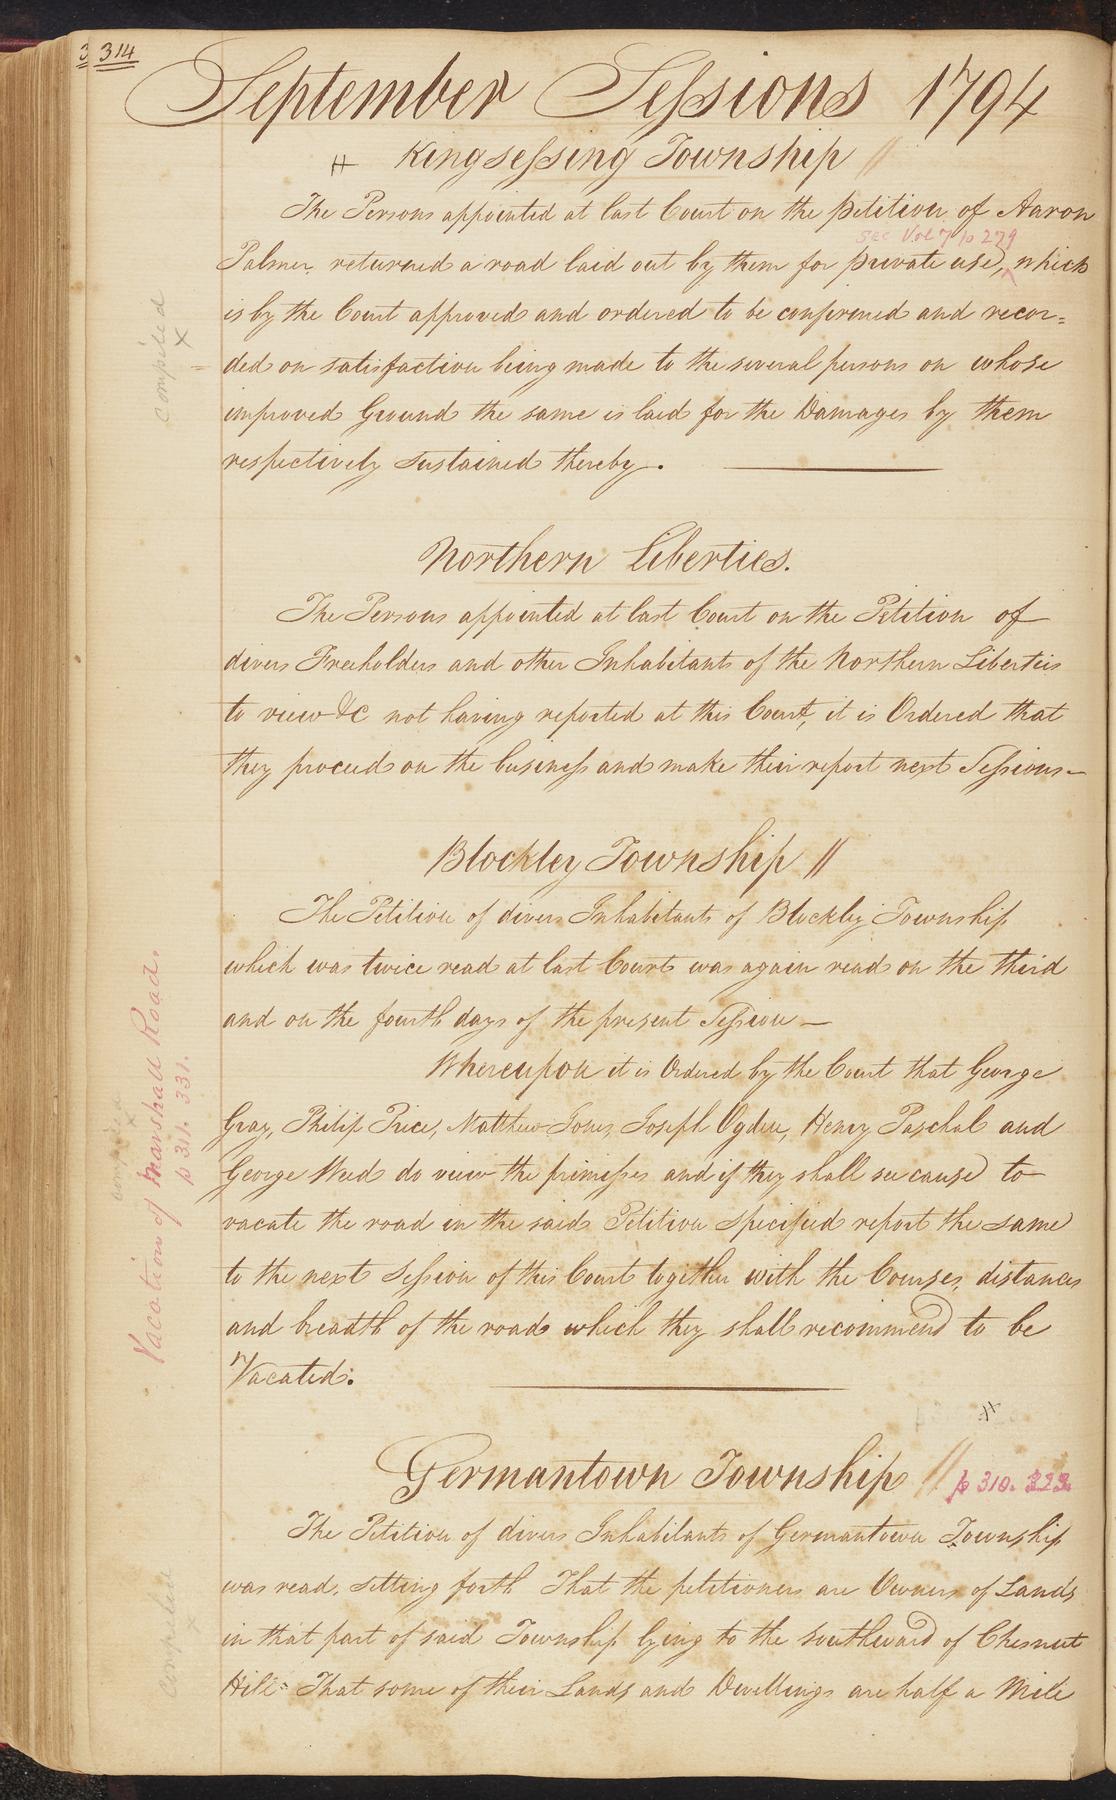 314
September Sessions 1794
Kingsessing Township //
The Persons appointed at last Court on the petition of Aaron
see Vol 7 p 279
Palmer returned a road laid out by them for private use, which
is by the Court approved and ordered to be confirmed and recor=
ded on satisfaction being made to the several persons on whose
improved Ground the same is laid for the Damages by them
respectively sustained thereby.
compiled
x
Northern Liberties.
The Persons appointed at last Court on the Petition of
divers Freeholders and other Inhabitants of the Northern Liberties
to view &c not having reported at this Court, it is Ordered that
they proceed on the business and make their report next Sessions—
Blockley Township //
The Petition of divers Inhabitants of Blockley Township
which was twice read at last Court was again read on the third
and on the fourth days of the present Session —
Whereupon it is Ordered by the Court that George
Gray, Philip Price, Matthew Jones, Joseph Ogden, Henry Paschal and
George Weed do view the premisses and if they shall see cause to
vacate the road in the said Petition specified report the same
to the next Session of this Court together with the Courses, distances
and breadth of the road which they shall recommend to be
Vacated:
compiled
Vacation of Marshall Road.
p 311. 331.
Germantown Township // p 310. 323.
The Petition of divers Inhabitants of Germantown Township
was read, setting forth That the petitioners are Owners of Lands
in that part of said Township lying to the southward of Chesnut
Hill: That some of their Lands and Dwellings are half a Mile
compiled